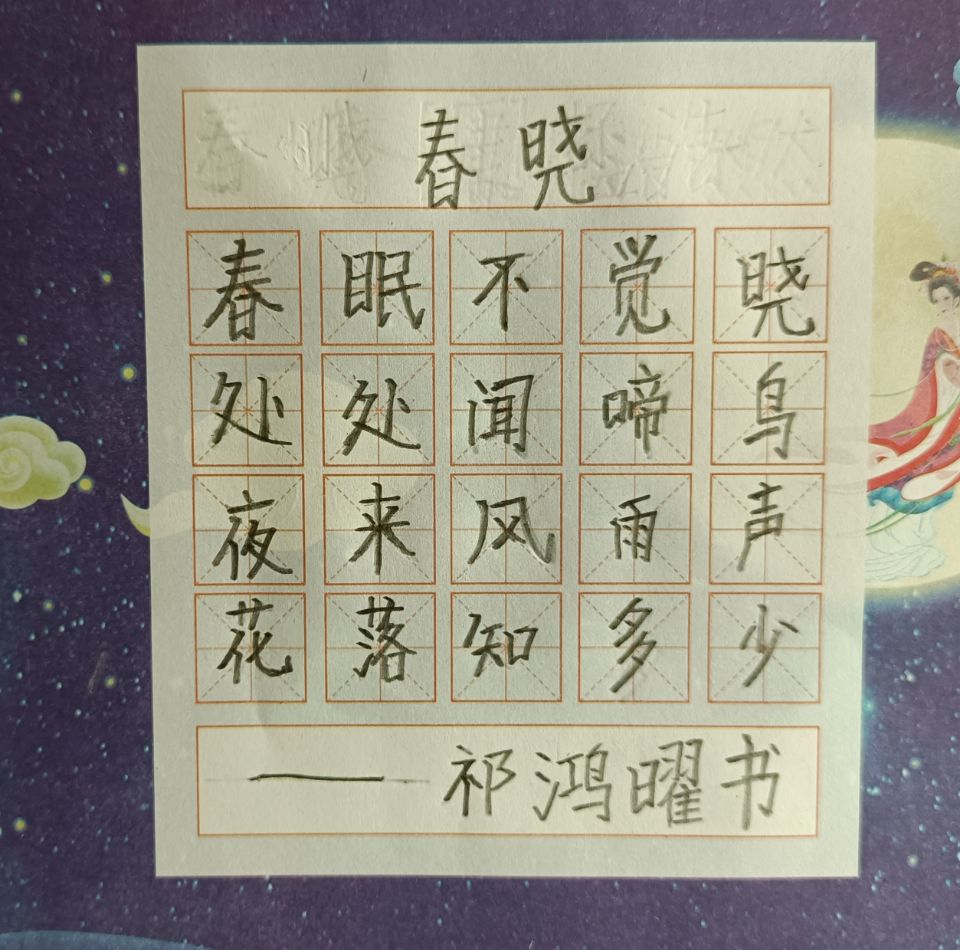 春晓
春眠不觉晓
处处闻啼鸟
夜来风雨声
花落知多少
——祁鸿曜书